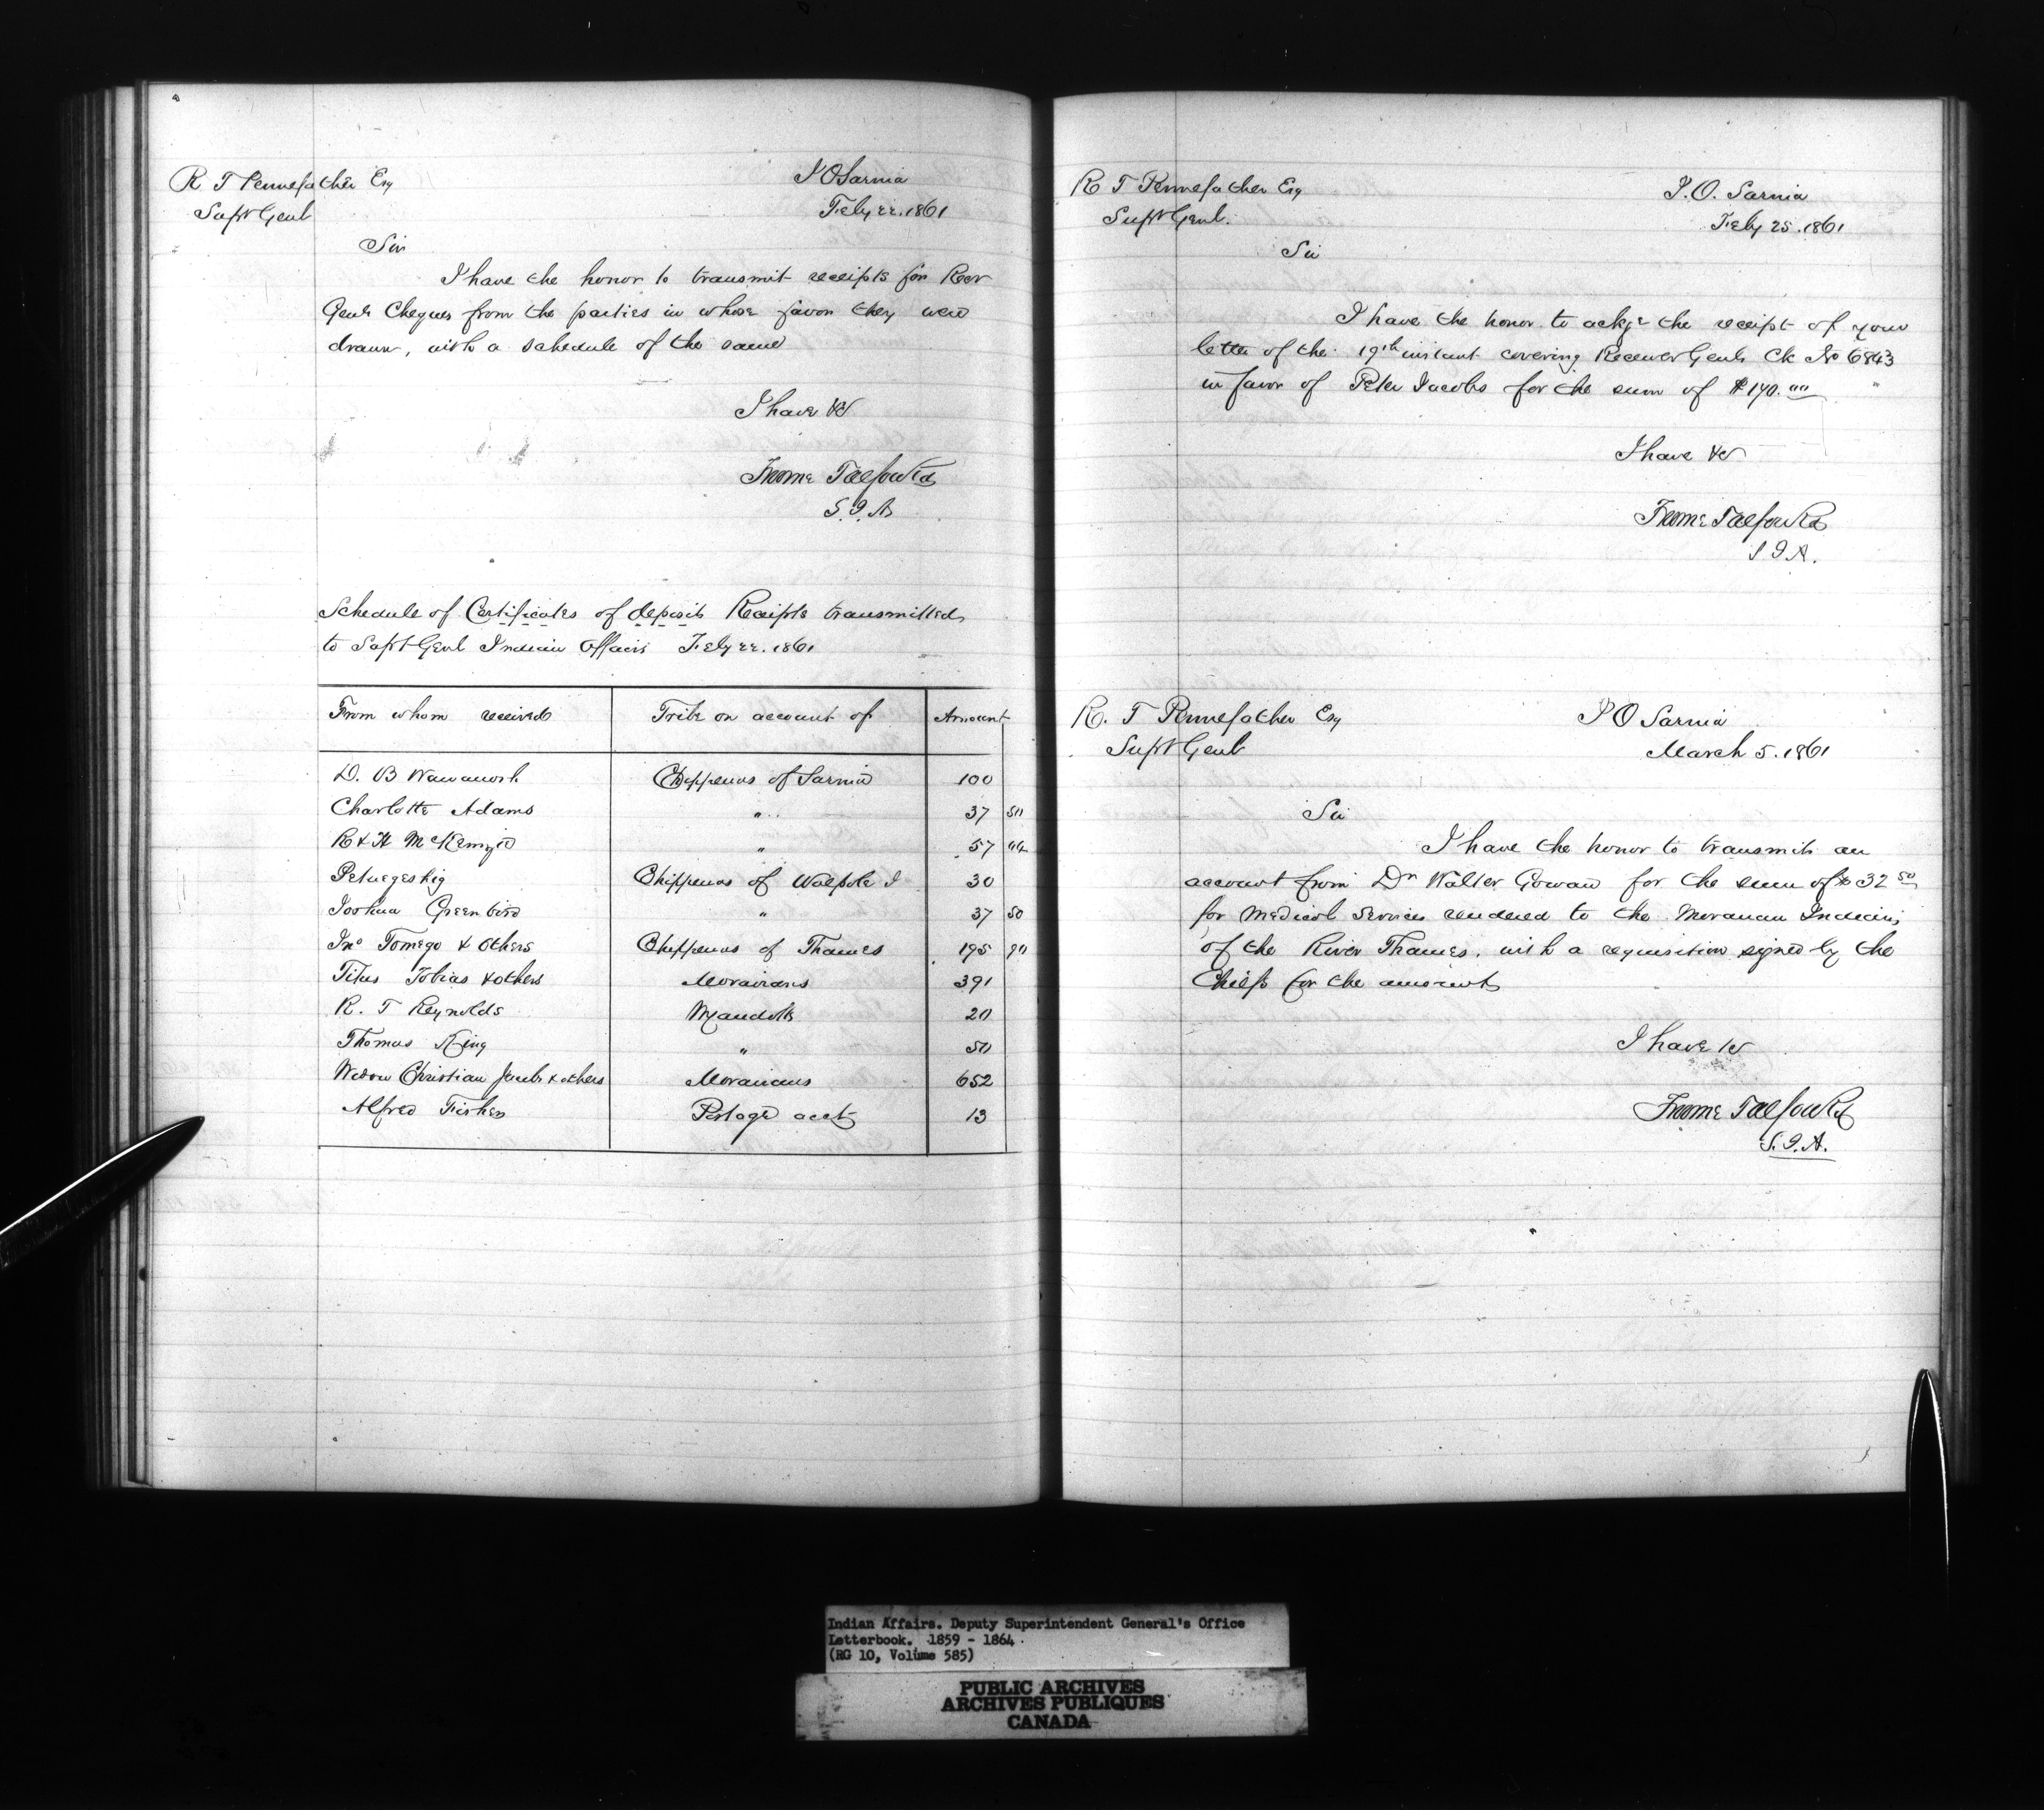 R T Pennefather Esq
Supt Genl
I O Sarnia
Feby 22. 1861
Sir
I have the honor to transmit receipts for Recr
Genls Cheques from the parties in whose favor they were
drawn, with a schedule of the same
I have &c
Froome Talfourd
S. I. A
Schedule of Certificates of deposit Receipts transmitted
to Supt Genl Indian Affairs Feby 22. 1861
From whom received Tribe on account of Amount
D. B Wawanosh Chippewas of Sarnia 100
Charlotte Adams " 37 50
R & H McKenzie " 57
Petwegeshig Chippewas of Walpole I 30
Joshua Greenbird " 37 50
Jno Tomego & others Chippewas of Thames 195 90
Titus Tobias & others Moravians 391
R. T Reynolds Wyandotts 20
Thomas King " 50
Widow Christian Jacobs & others Moravians 652
Alfred Fisher Postage acct 13
R T Pennefather Esq
Supt Genl.
I. O. Sarnia
Feby 25. 1861
Sir
I have the honor to ackge the receipt of your
letter of the 19th instant covering Receiver Genls Ck No 6843
in favor of Peter Jacobs for the sum of $170.00
I have &c
Froome Talfourd
S I A.
R. T Pennefather Esq
Supt Genl
I O Sarnia
March 5. 1861
Sir
I have the honor to transmit an
account from Dr Walter Gowan for the sum of $32 50
for Medical Services rendered to the Moravian Indians
of the River Thames. with a requisition signed by the
Chiefs for the amount
I have &c
Froome Talfourd
S. I. A.
Indian Affairs. Deputy Superintendent General's Office
Letterbook. 1859 - 1864
(RG 10, Volume 585)
PUBLIC ARCHIVES
ARCHIVES PUBLIQUES
CANADA